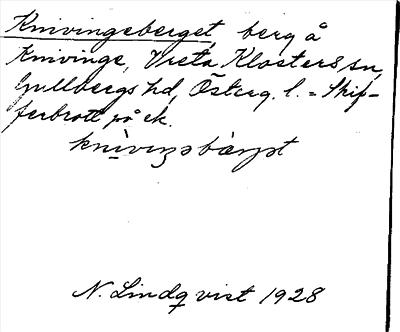 Knivingeberget, berg å
Knivinge, Vreta Klosters sn,
Gullbergs hd, Österg. l. = Skif-
ferbrott på ek.
N. Lindqvist 1928